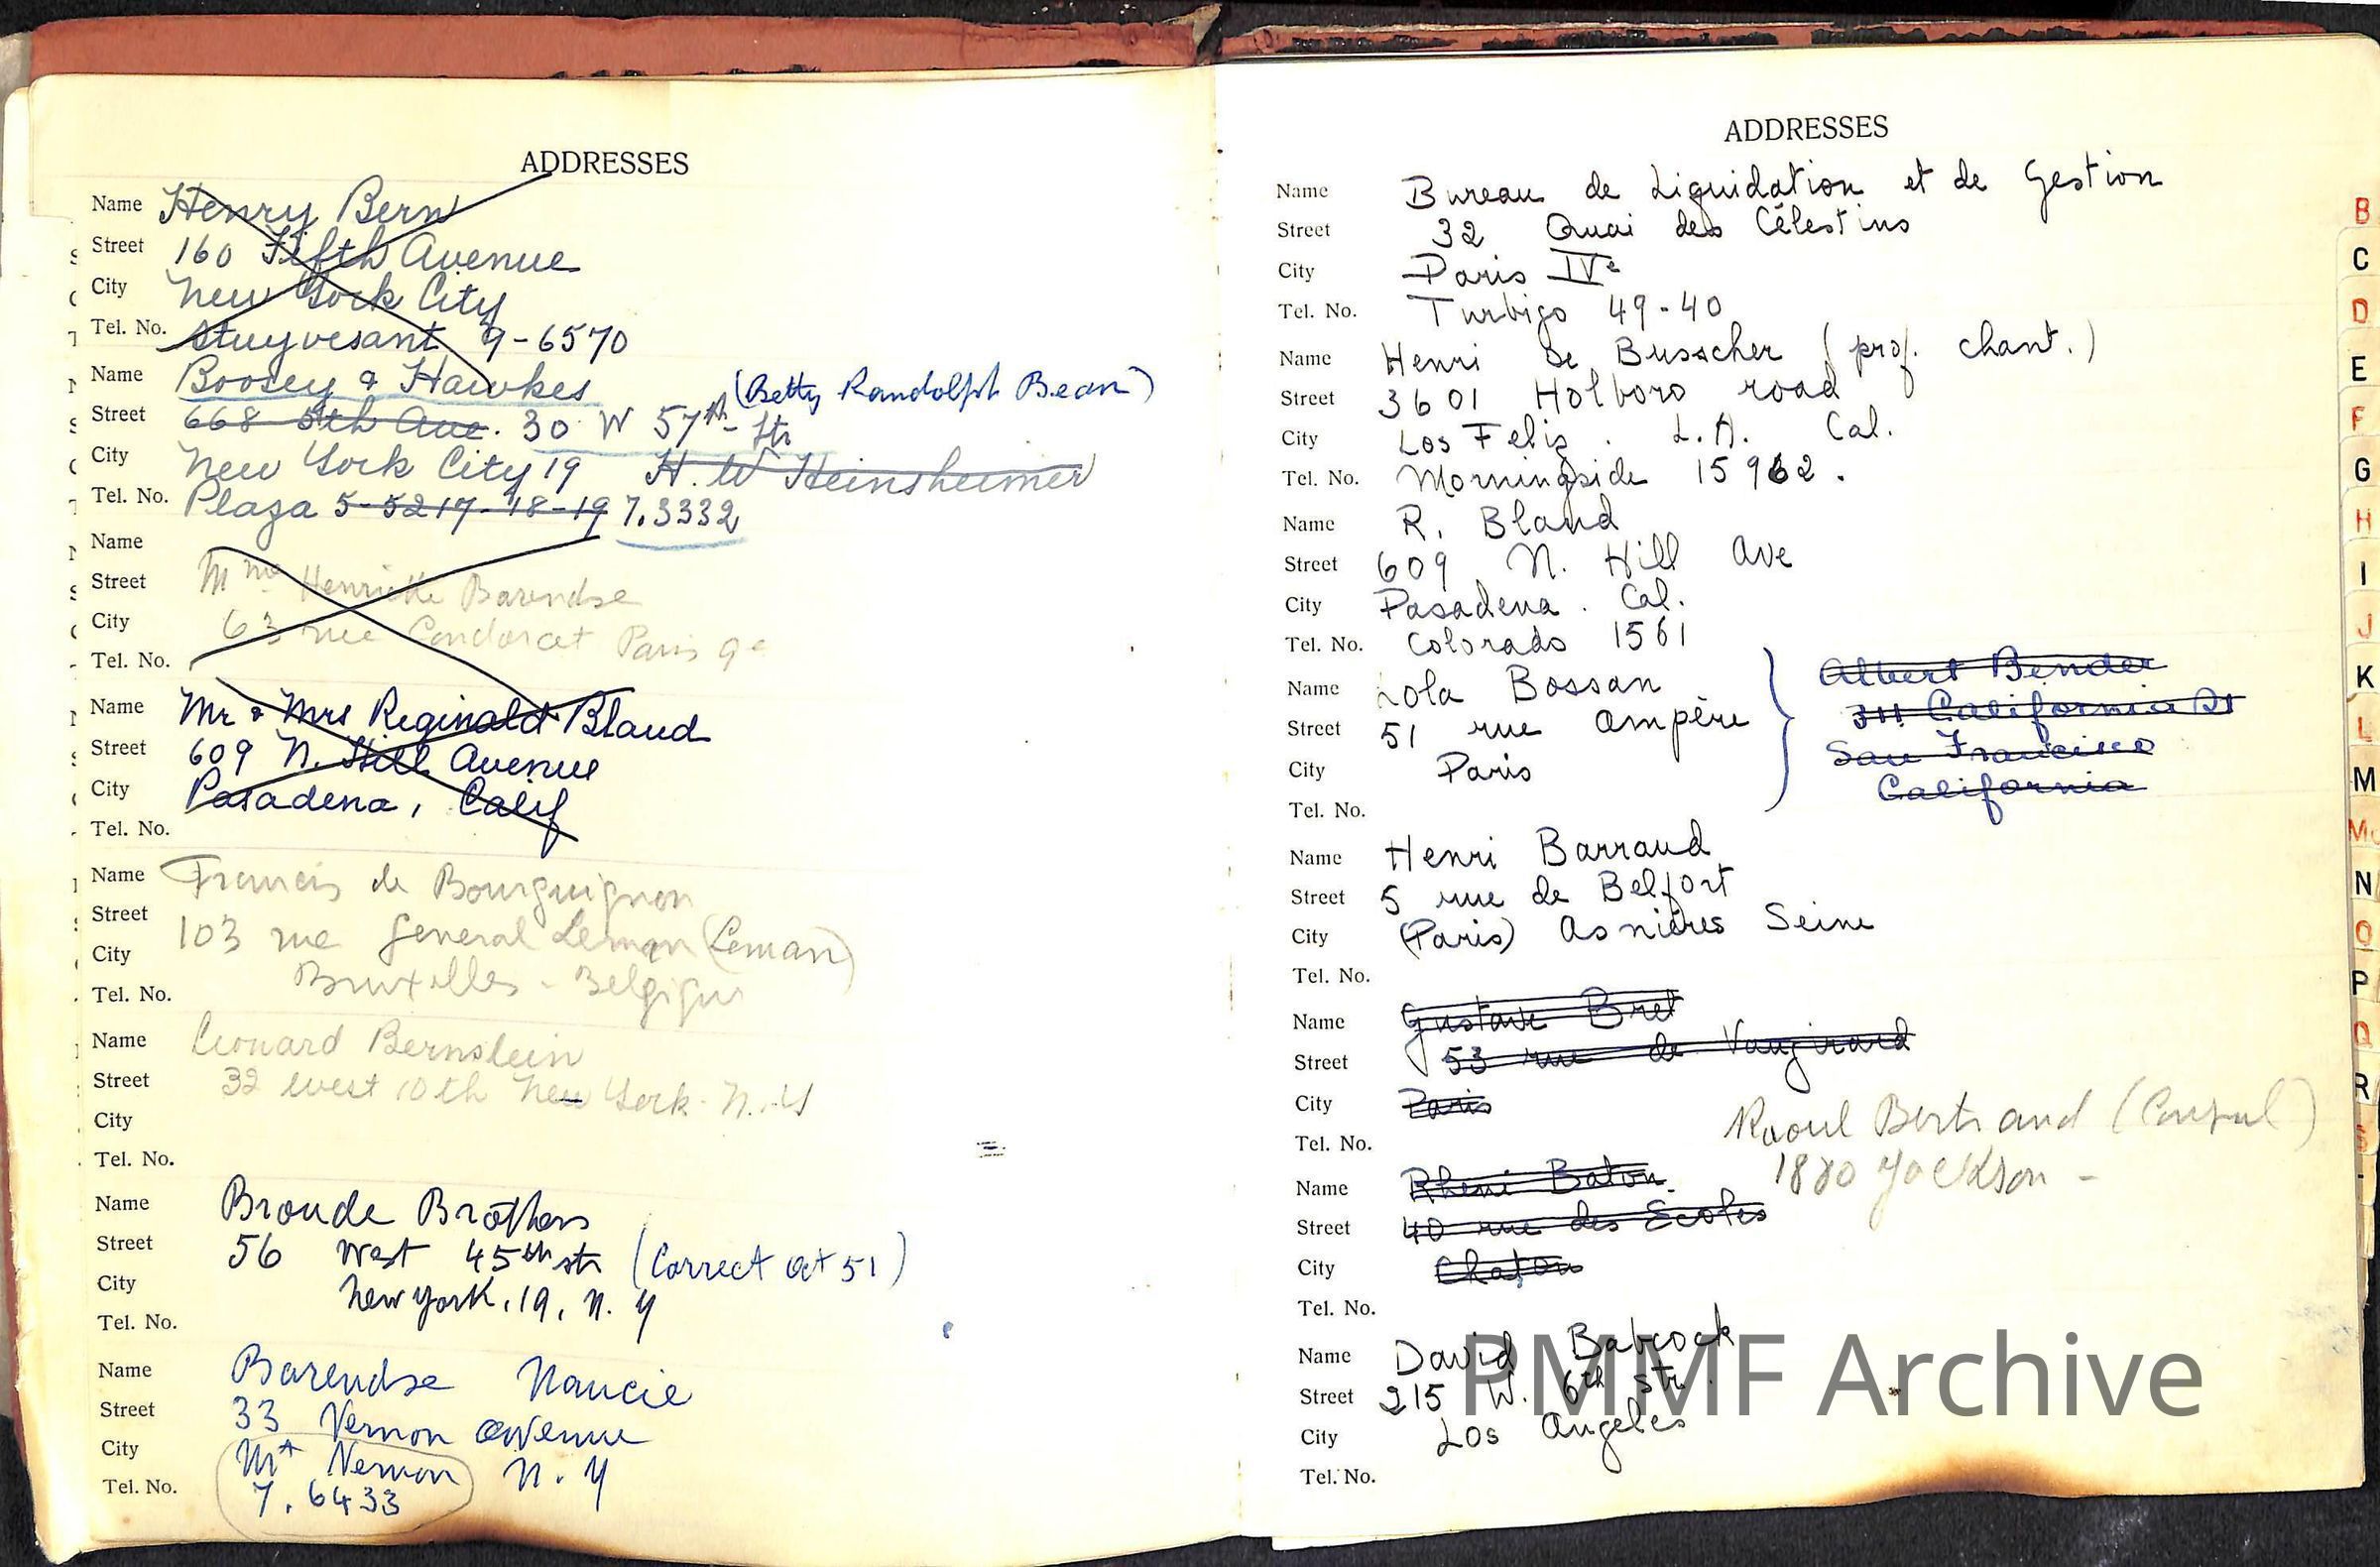 ADDRESSES
Name Henry Bern
Street 160 Fifth Avenue
City New York City
Tel. No. Stuyvesant 9-6570
Name Boosey & Hawkes (Betty Randolph Bean)
Street 668 5th Ave. 30 W 57th Str
City New York City 19 H. W Heinsheimer
Tel. No. Plaza 5-5217-18-19 7.3332
Name
Street Mme Henriette Barendse
City 63 rue Condorcet Paris 9e
Tel. No.
Name Mr & Mrs Reginald Bland
Street 609 N. Hill Avenue
City Pasadena, Calif
Tel. No.
Name Francis de Bourguignon
Street 103 rue General Leman (Leman)
City Bruxelles - Belgique
Tel. No.
Name Leonard Bernstein
Street 32 West 10th New York. N.Y
City
Tel. No.
Name Broude Brothers
Street 56 West 45th str (Correct Oct 51)
City New York. 19, N. Y
Tel. No.
Name Barendse Nancie
Street 33 Vernon avenue
City Mt Vernon N. Y
Tel. No. 7. 6433
ADDRESSES
Name Bureau de Liquidation et de Gestion
Street 32 Quai des Célestins
City Paris IVe
Tel. No. Turbigo 49-40
Name Henri de Busscher (prof. chant.)
Street 3601 Holboro road
City Los Feliz. L.A. Cal.
Tel. No. Morningside 15962.
Name R. Bland
Street 609 N. Hill Ave
City Pasadena. Cal.
Tel. No. Colorado 1561
Name Lola Bossan
Street 51 rue Ampère
City Paris
Tel. No.
Albert Bender
311 California St
San Francisco
California
Name Henri Barraud
Street 5 rue de Belfort
City (Paris) Asnières Seine
Tel. No.
Name Gustave Bret
Street 53 rue de Vaugirard
City Paris
Tel. No.
Raoul Bertrand (Consul)
1880 Jackson -
Name Rhené Baton
Street 40 rue des Ecoles
City Chatou
Tel. No.
Name David Babcock
Street 215 W. 6th Str.
City Los Angeles
Tel. No.
B
C
D
E
F
G
H
I
J
K
L
M
Mc
N
O
P
Q
R
S
PMMF Archive